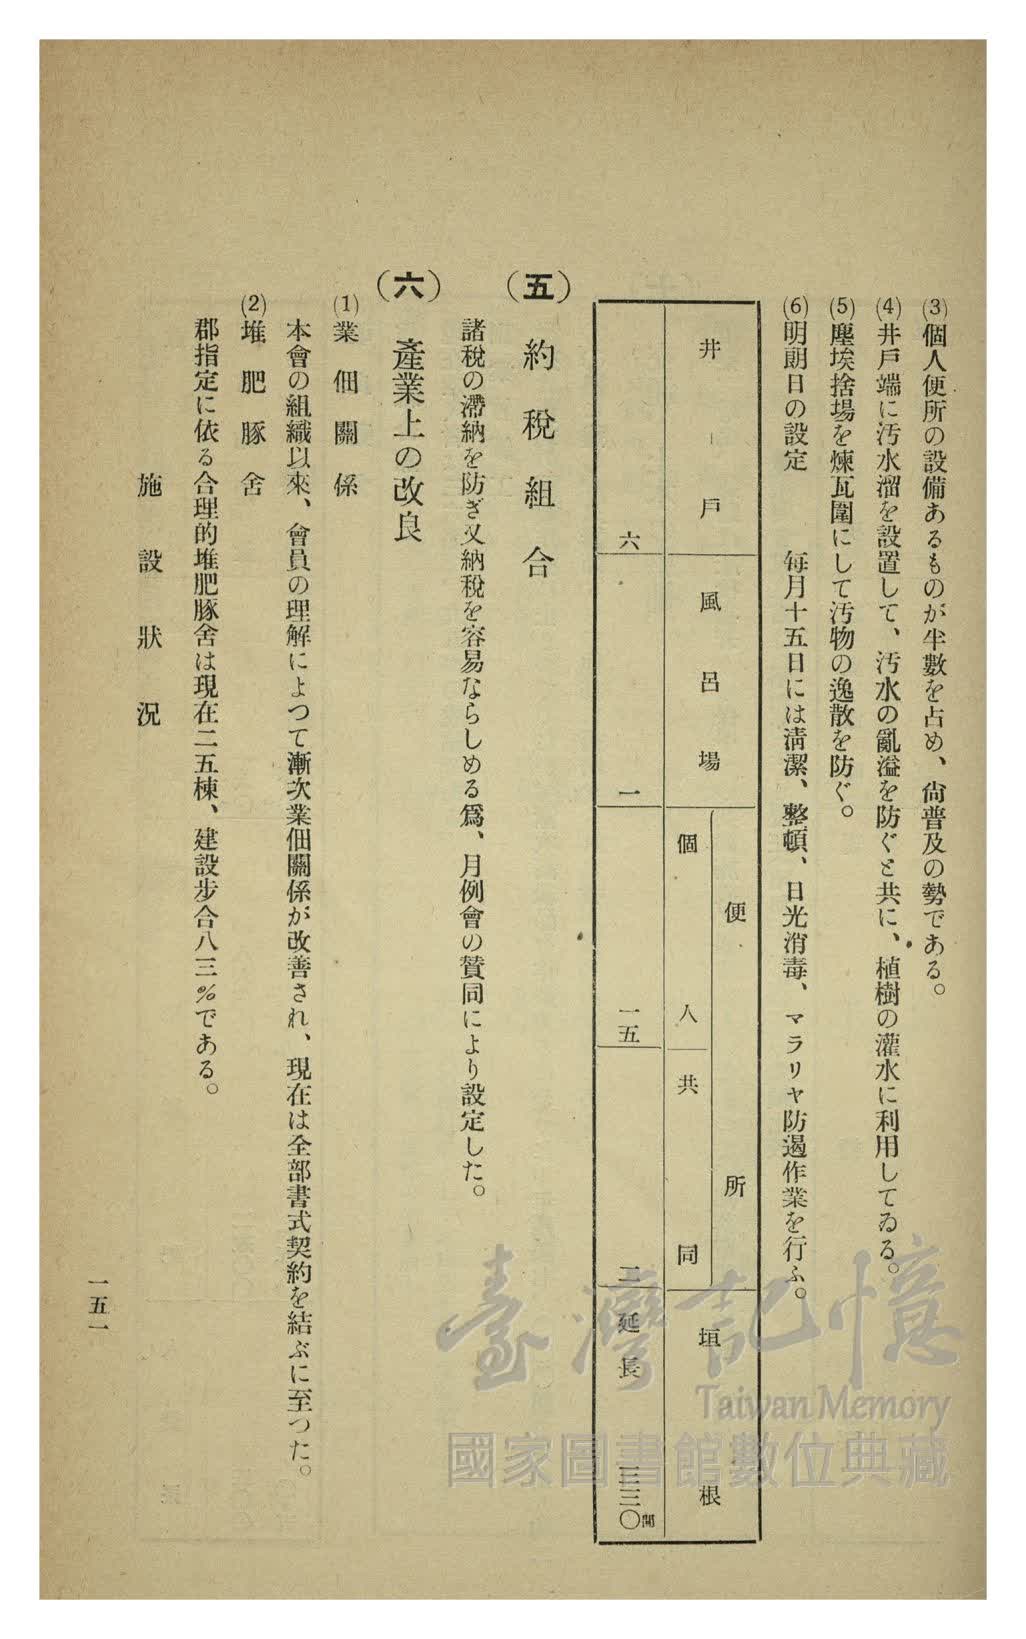 (3)個人便所の設備あるものが半數を占め、尙普及の勢である。
(4)井戶端に汚水溜を設置して、汚水の亂溢を防ぐと共に、植樹の灌水に利用してゐる。
(5)塵埃捨場を煉瓦圍にして汚物の逸散を防ぐ。
(6)明朗日の設定 每月十五日には淸潔、整頓、日光消毒、マラリヤ防遏作業を行ふ。
井戶 風呂場 便所 垣根
個人 共同
六 一 一五 二 延長 三三〇間
(五) 約稅組合
諸稅の滯納を防ぎ又納稅を容易ならしめる爲、月例會の贊同により設定した。
(六) 產業上の改良
(1)業佃關係
本會の組織以來、會員の理解によつて漸次業佃關係が改善され、現在は全部書式契約を結ぶに至つた。
(2)堆肥豚舍
郡指定に依る合理的堆肥豚舍は現在二五棟、建設步合八三%である。
施設狀況
一五一
臺灣記憶
Taiwan Memory
國家圖書館數位典藏